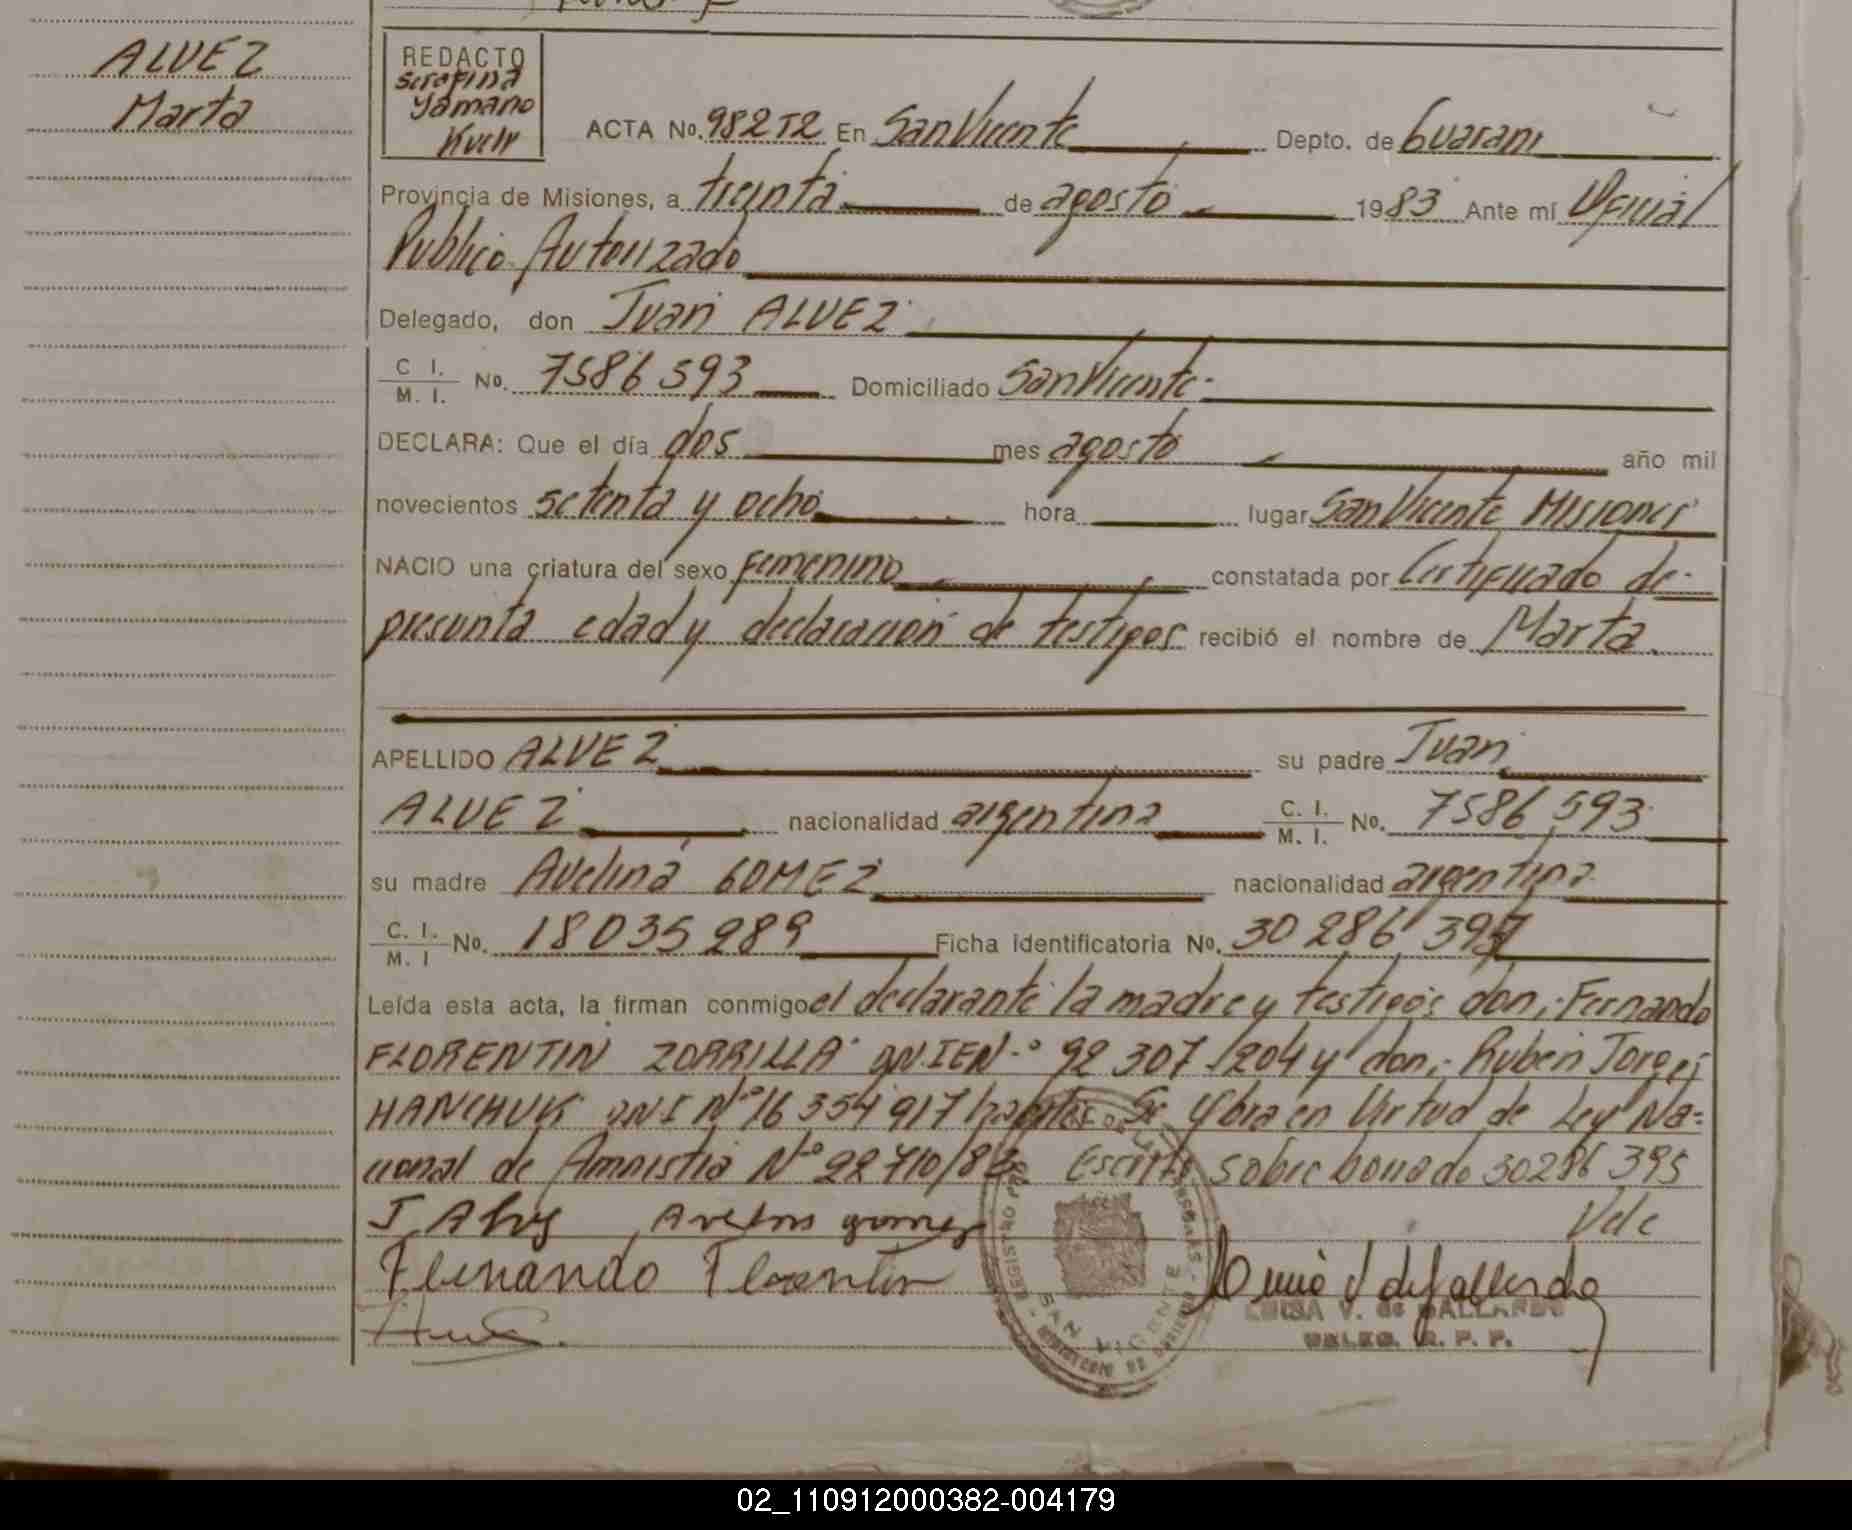 ALVEZ
Marta
REDACTO
Serafina
Yamano
ACTA No. 982 T2 En San Vicente Depto. de Guarani
Provincia de Misiones, a treinta de agosto 1983 Ante mí Oficial
Publico Autorizado
Delegado, don Juan ALVEZ
C. I. / M. I. No. 7586 593 Domiciliado San Vicente
DECLARA: Que el día dos mes agosto año mil
novecientos setenta y ocho hora lugar San Vicente Misiones
NACIO una criatura del sexo femenino constatada por Certificado de
presunta edad y declaracion de testigos recibió el nombre de Marta
APELLIDO ALVEZ su padre Juan
ALVEZ nacionalidad argentina C. I. / M. I. No. 7586 593
su madre Avelina GOMEZ nacionalidad argentina
C. I. / M. I No. 18035289 Ficha identificatoria No. 30 286 395
Leída esta acta, la firman conmigo el declarante la madre y testigos don: Fernando
FLORENTIN ZORRILLA DNIEN° 92 307 204 y don: Ruben Jorge
HANCHUK DNI N° 16 354 917 Se labra en Virtud de Ley Na-
cional de Amnistia N° 22710/83 Escrito sobre borrado 30286 395
Vale
J. Alves Avelina gomez
Fernando Florentin
SAN VICENTE
LUISA V. de GALLARDO
DELEG. R. P. P.
02_110912000382-004179